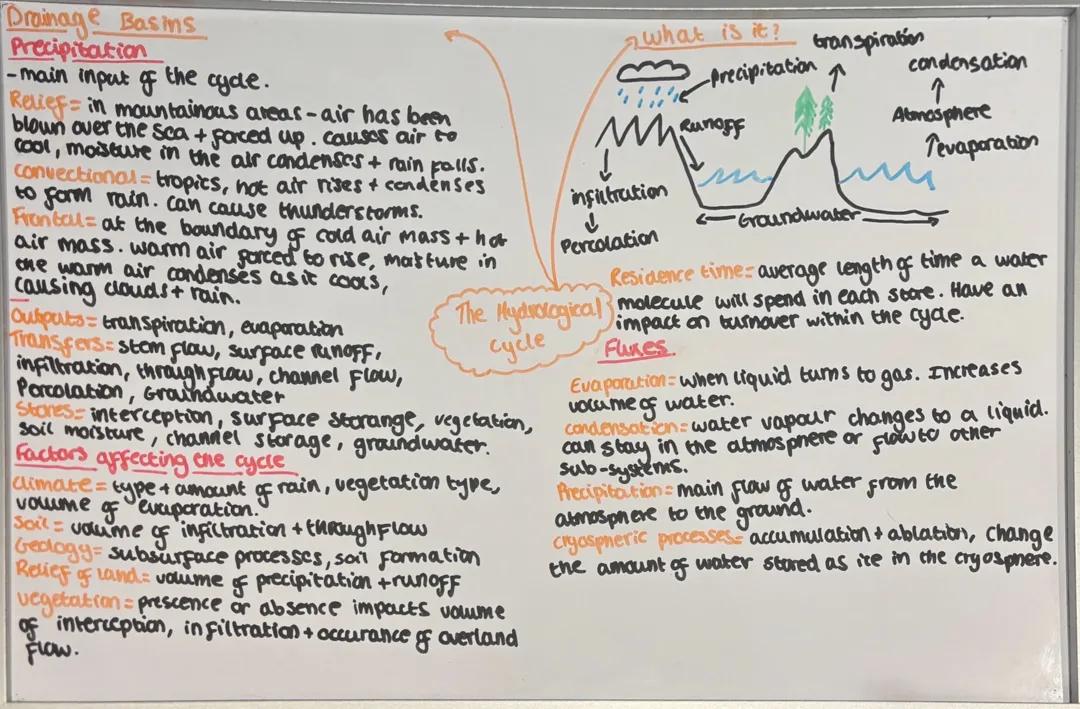 Drainage Basins
Precipitation
- main input of the cycle.
Relief = in mountainous areas - air has been
blown over the sea + forced up. causes air to
cool, moisture in the air condenses + rain falls.
convectional = tropics, hot air rises + condenses
to form rain. can cause thunderstorms.
Frontal = at the boundary of cold air mass + hot
air mass. warm air forced to rise, moisture in
the warm air condenses as it cools,
causing clouds + rain.
Outputs = transpiration, evaporation
Transfers = stem flow, surface runoff,
infiltration, throughflow, channel flow,
Percolation, Groundwater
Stores = interception, surface storange, vegetation,
soil moisture, channel storage, groundwater.
Factors affecting the cycle
climate = type + amount of rain, vegetation type,
volume of evaporation.
Soil = volume of infiltration + throughflow
Geology = subsurface processes, soil formation
Relief of land = volume of precipitation + runoff
vegetation = prescence or absence impacts volume
of interception, infiltration + occurance of overland
flow.
The Hydrological
cycle
what is it?
transpiration
condensation
precipitation
Atmosphere
Runoff
evaporation
infiltration
Groundwater
Percolation
Residence time = average length of time a water
molecule will spend in each store. Have an
impact on turnover within the cycle.
Fluxes
Evaporation = when liquid turns to gas. Increases
volume of water.
condensation = water vapour changes to a liquid.
can stay in the atmosphere or flow to other
sub-systems.
Precipitation = main flow of water from the
atmosphere to the ground.
cryospheric processes = accumulation + ablation, change
the amount of water stored as ice in the cryosphere.